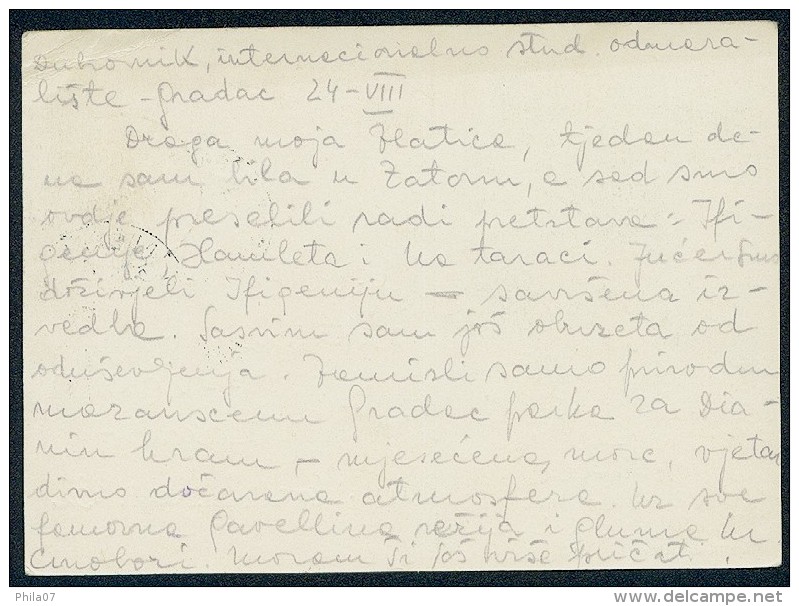 Dubrovnik, internacionalno stud. odmara-
lište - Gradac 24-VIII
Draga moja Zlatice, tjedan da-
na sam bila u Zatonu, a sad smo
ovdje preselili radi pretstava: Ifi-
genije, Hamleta i Na taraci. Jučer smo
doživjeli Ifigeniju — savršena iz-
vedba. Sasvim sam još obuzeta od
oduševljenja. Zamisli samo prirodnu
Gradac parka za Dia-
nin hram, - mjesečena, more, vjetar
divno dočarana atmosfera. Uz sve
Gavellina režija i gluma
Crnobori. Moram Ti još više pričati.
Phila07
www.delcampe.net